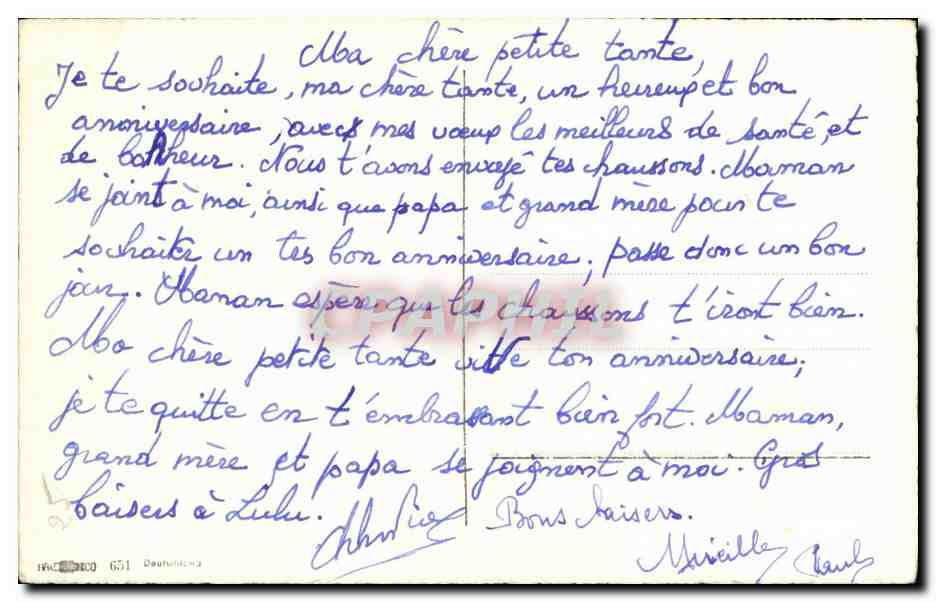 Ma chère petite tante,
Je te souhaite, ma chère tante, un heureux et bon
anniversaire, avec mes vœux les meilleurs de santé, et
de bonheur. Nous t'avons envoyé tes chaussons. Maman
se joint à moi, ainsi que papa et grand mère pour te
souhaiter un tes bon anniversaire, passe donc un bon
jour. Maman espère que les chaussons t'iront bien.
Ma chère petite tante vitte ton anniversaire,
je te quitte en t'embrassant bien fort. Maman,
grand mère et papa se joignent à moi. Gros
baisers à Lulu.
Bons baisers.
Mireille
651
CPAPHIL